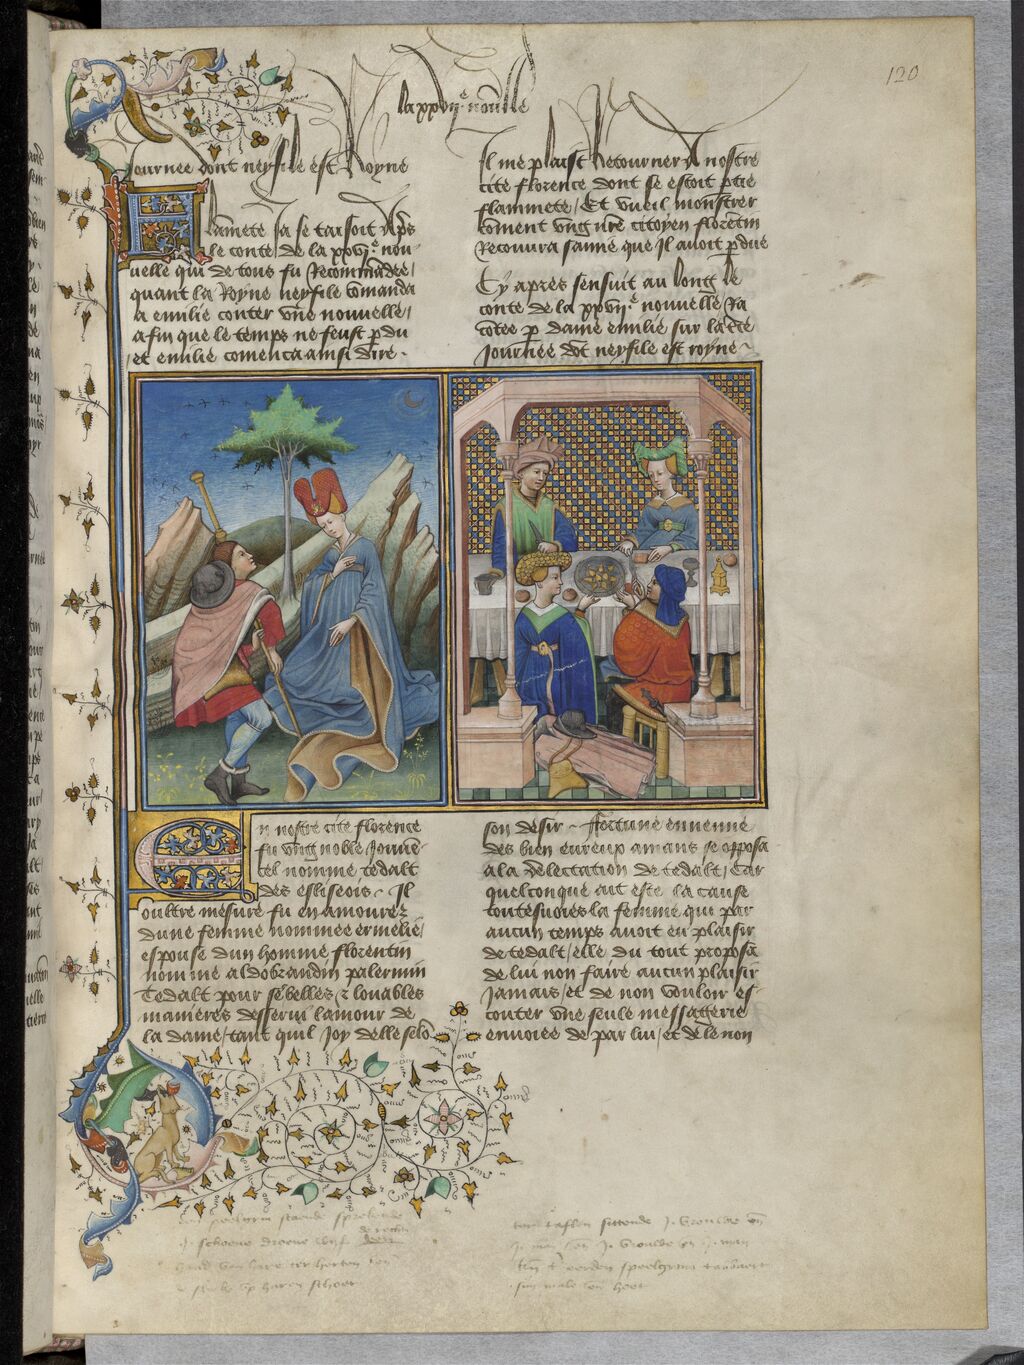 120
la xxvij.e nouvelle
Journee dont neyfile est Royne
Flamete ja se taisoit Apres
le conte de la xxvj.e nou
uelle qui de tous fu Recommandee /
quant la Royne neyfile comanda
a emilie conter vne nouuelle /
afin que le temps ne feust perdu
et emilie comenca ainsi dire.
Il me plaist Retourner A nostre
cite florence dont se estoit ptie
flammete / Et vueil monstrer
coment vng nre citoyen florentin
Recouura samie que Il auoit pdue
Cy apres sensuit au long le
conte de la xxvij.e nouuelle Ja
cotee p dame emilie sur la
Journee dot neyfile est royne
En nostre cite florence
fu vng noble Jouuen
cel nomme tedalt
des eliseois. Il
oultre mesure fu enamourez
dune femme nommee ermelie /
espouse dun homme florentin
nomme aldobrandin palermin
Tedalt pour ses belles & louables
manieres desserui lamour de
la dame / tant quil Joy delle selo
son desir. Fortune ennemie
des bien eureux amans se opposa
a la delectation de tedalt / Car
quelconque ait este la cause
toutesuoies la femme qui par
aucun temps auoit eu plaisir
de tedalt / elle du tout proposa
de lui non faire aucun plaisir
Jamais / et de non vouloir es
couter vne seule messagerie
enuoiee de par lui / et de le non